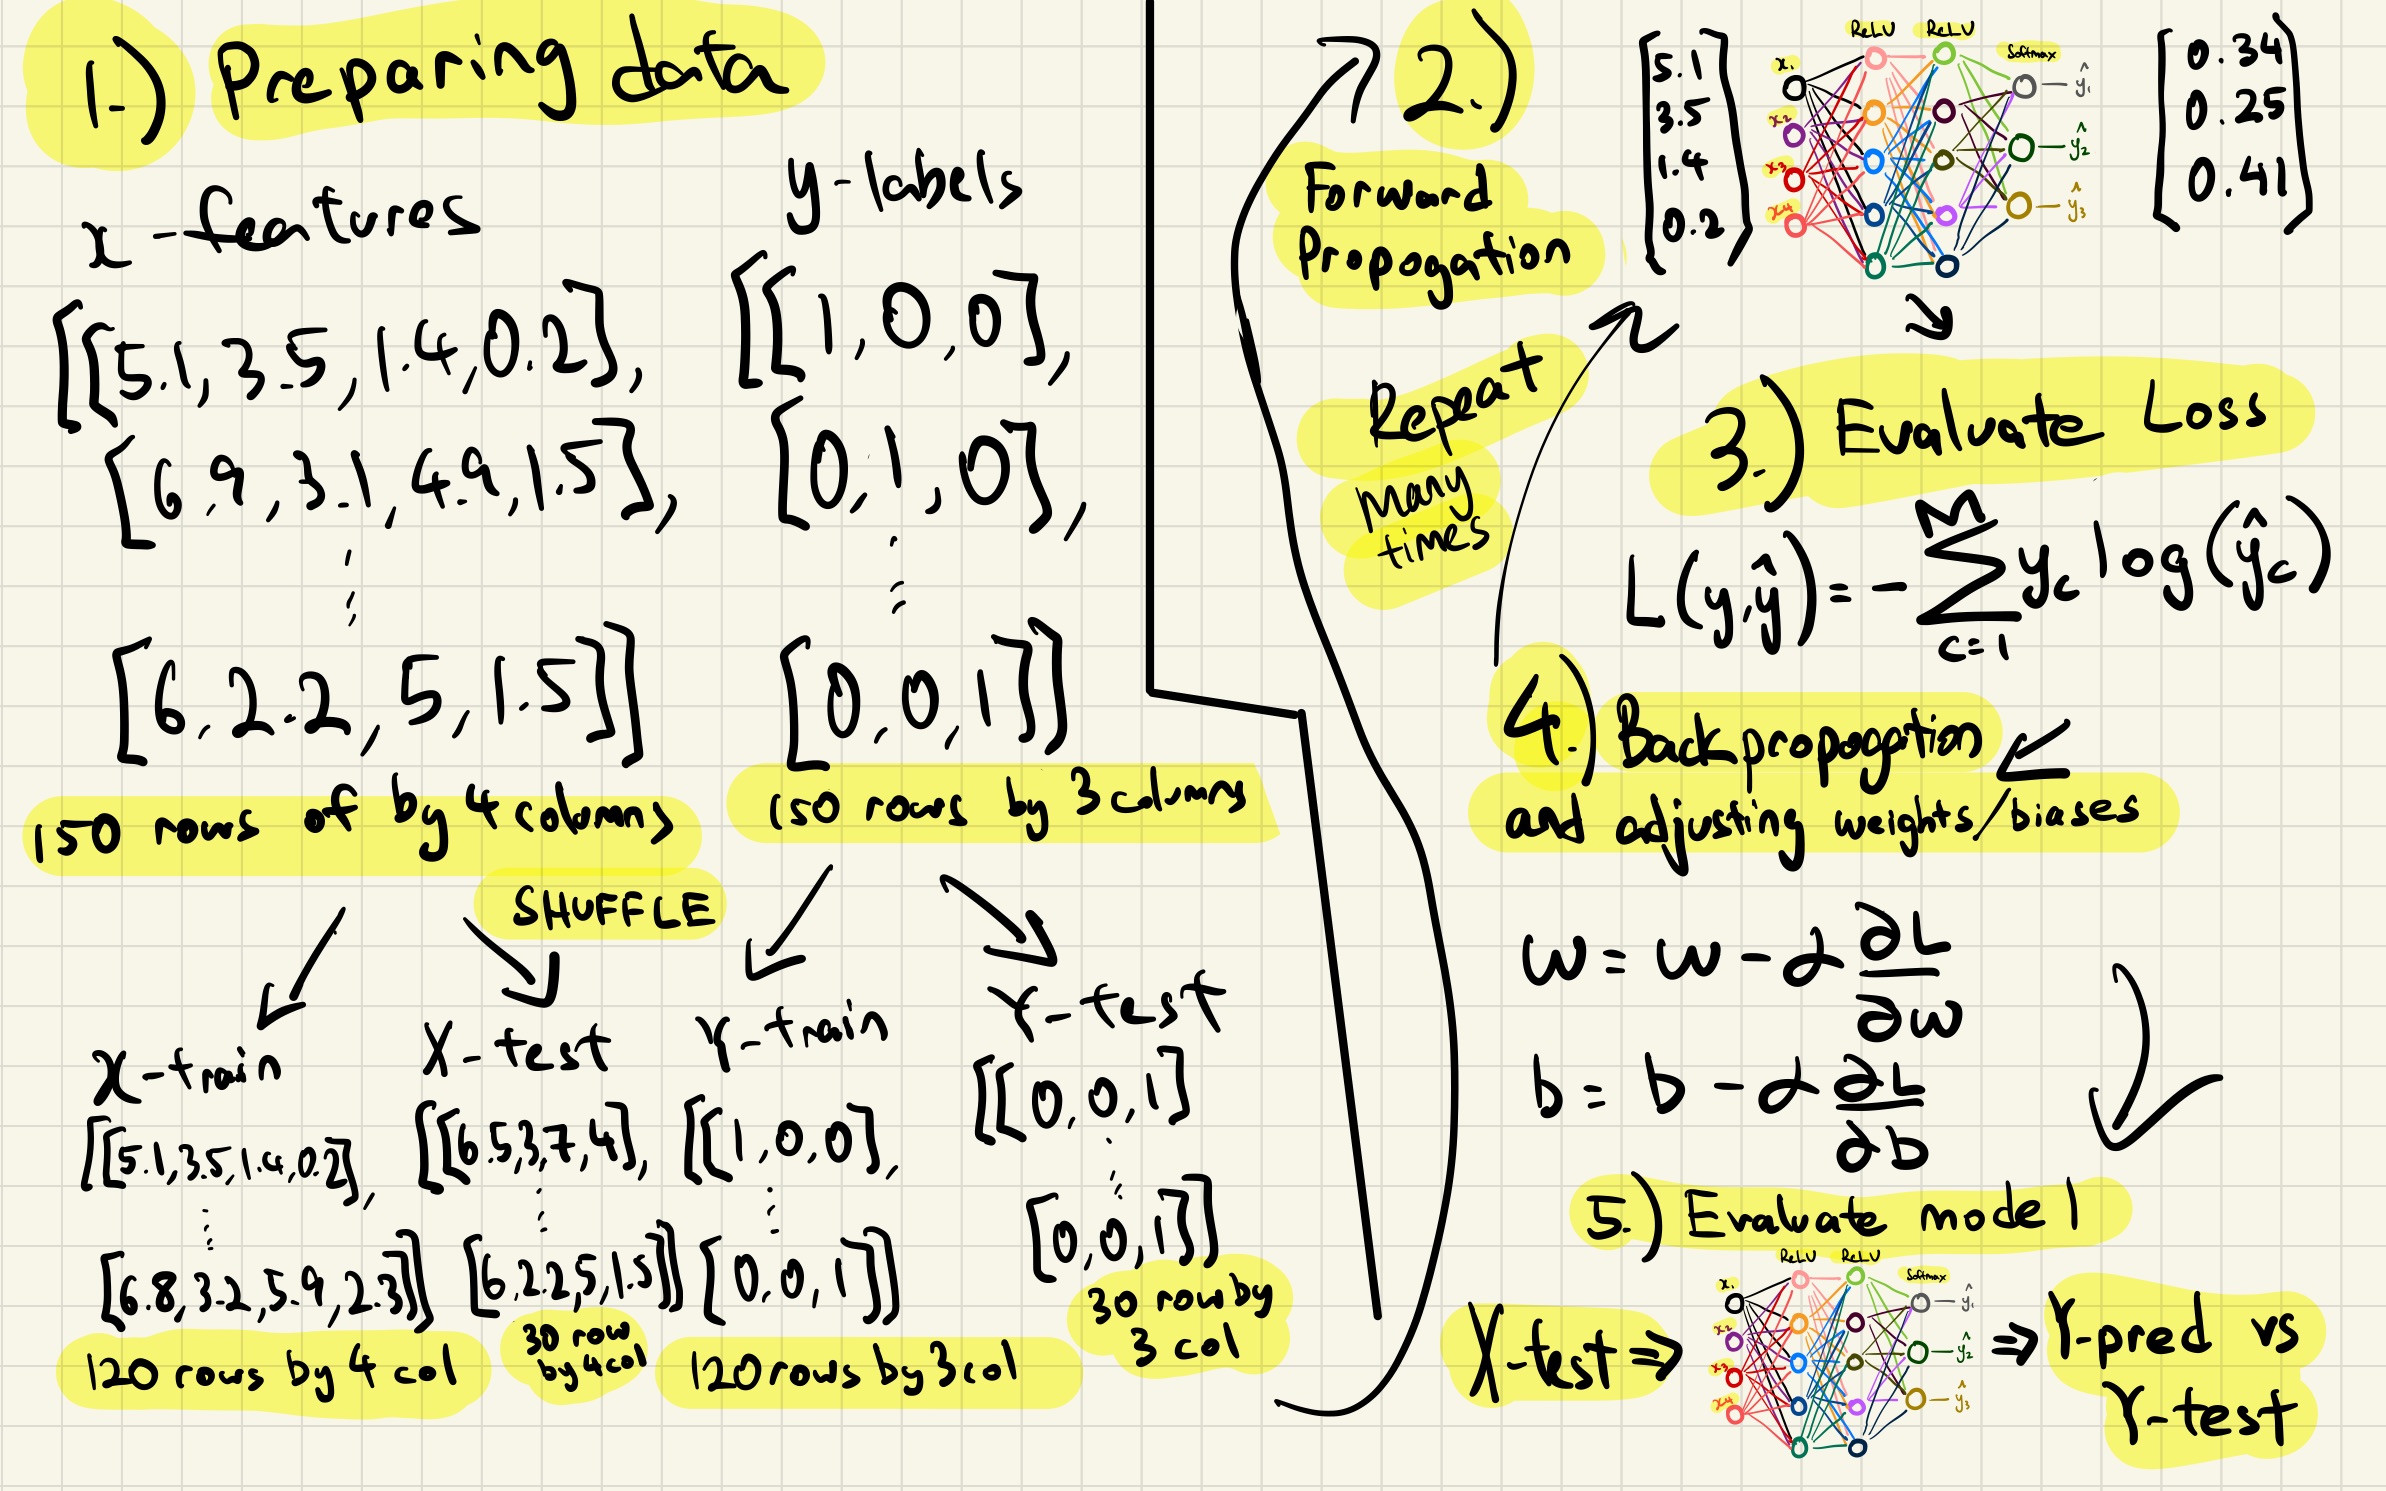 1.) Preparing data
x - features
y - labels
[[5.1, 3.5, 1.4, 0.2],
[6.9, 3.1, 4.9, 1.5],
[6, 2.2, 5, 1.5]]
[[1, 0, 0],
[0, 1, 0],
[0, 0, 1]]
150 rows of by 4 columns
150 rows by 3 columns
SHUFFLE
X-train
[[5.1, 3.5, 1.4, 0.2],
[6.8, 3.2, 5.9, 2.3]]
120 rows by 4 col
X-test
[[6.5, 3, 7, 4],
[6, 2.2, 5, 1.5]]
30 row
by 4 col
Y-train
[[1, 0, 0],
[0, 0, 1]]
120 rows by 3 col
Y-test
[[0, 0, 1]
[0, 0, 1]]
30 row by
3 col
2.)
Forward
Propogation
[5.1
3.5
1.4
0.2]
ReLU ReLU Softmax
x₁
x₂
x₃
x₄
ŷ₁
ŷ₂
ŷ₃
[0.34
0.25
0.41]
Repeat
Many
times
3.) Evaluate Loss
L(y,ŷ) = - M∑c=1 y_c log(ŷ_c)
4.) Backpropogation
and adjusting weights/biases
w = w - α ∂L/∂w
b = b - α ∂L/∂b
5.) Evaluate model
X-test ⇒
ReLU ReLU Softmax
x₁
x₂
x₃
x₄
ŷ₁
ŷ₂
ŷ₃
⇒ Y-pred vs
Y-test